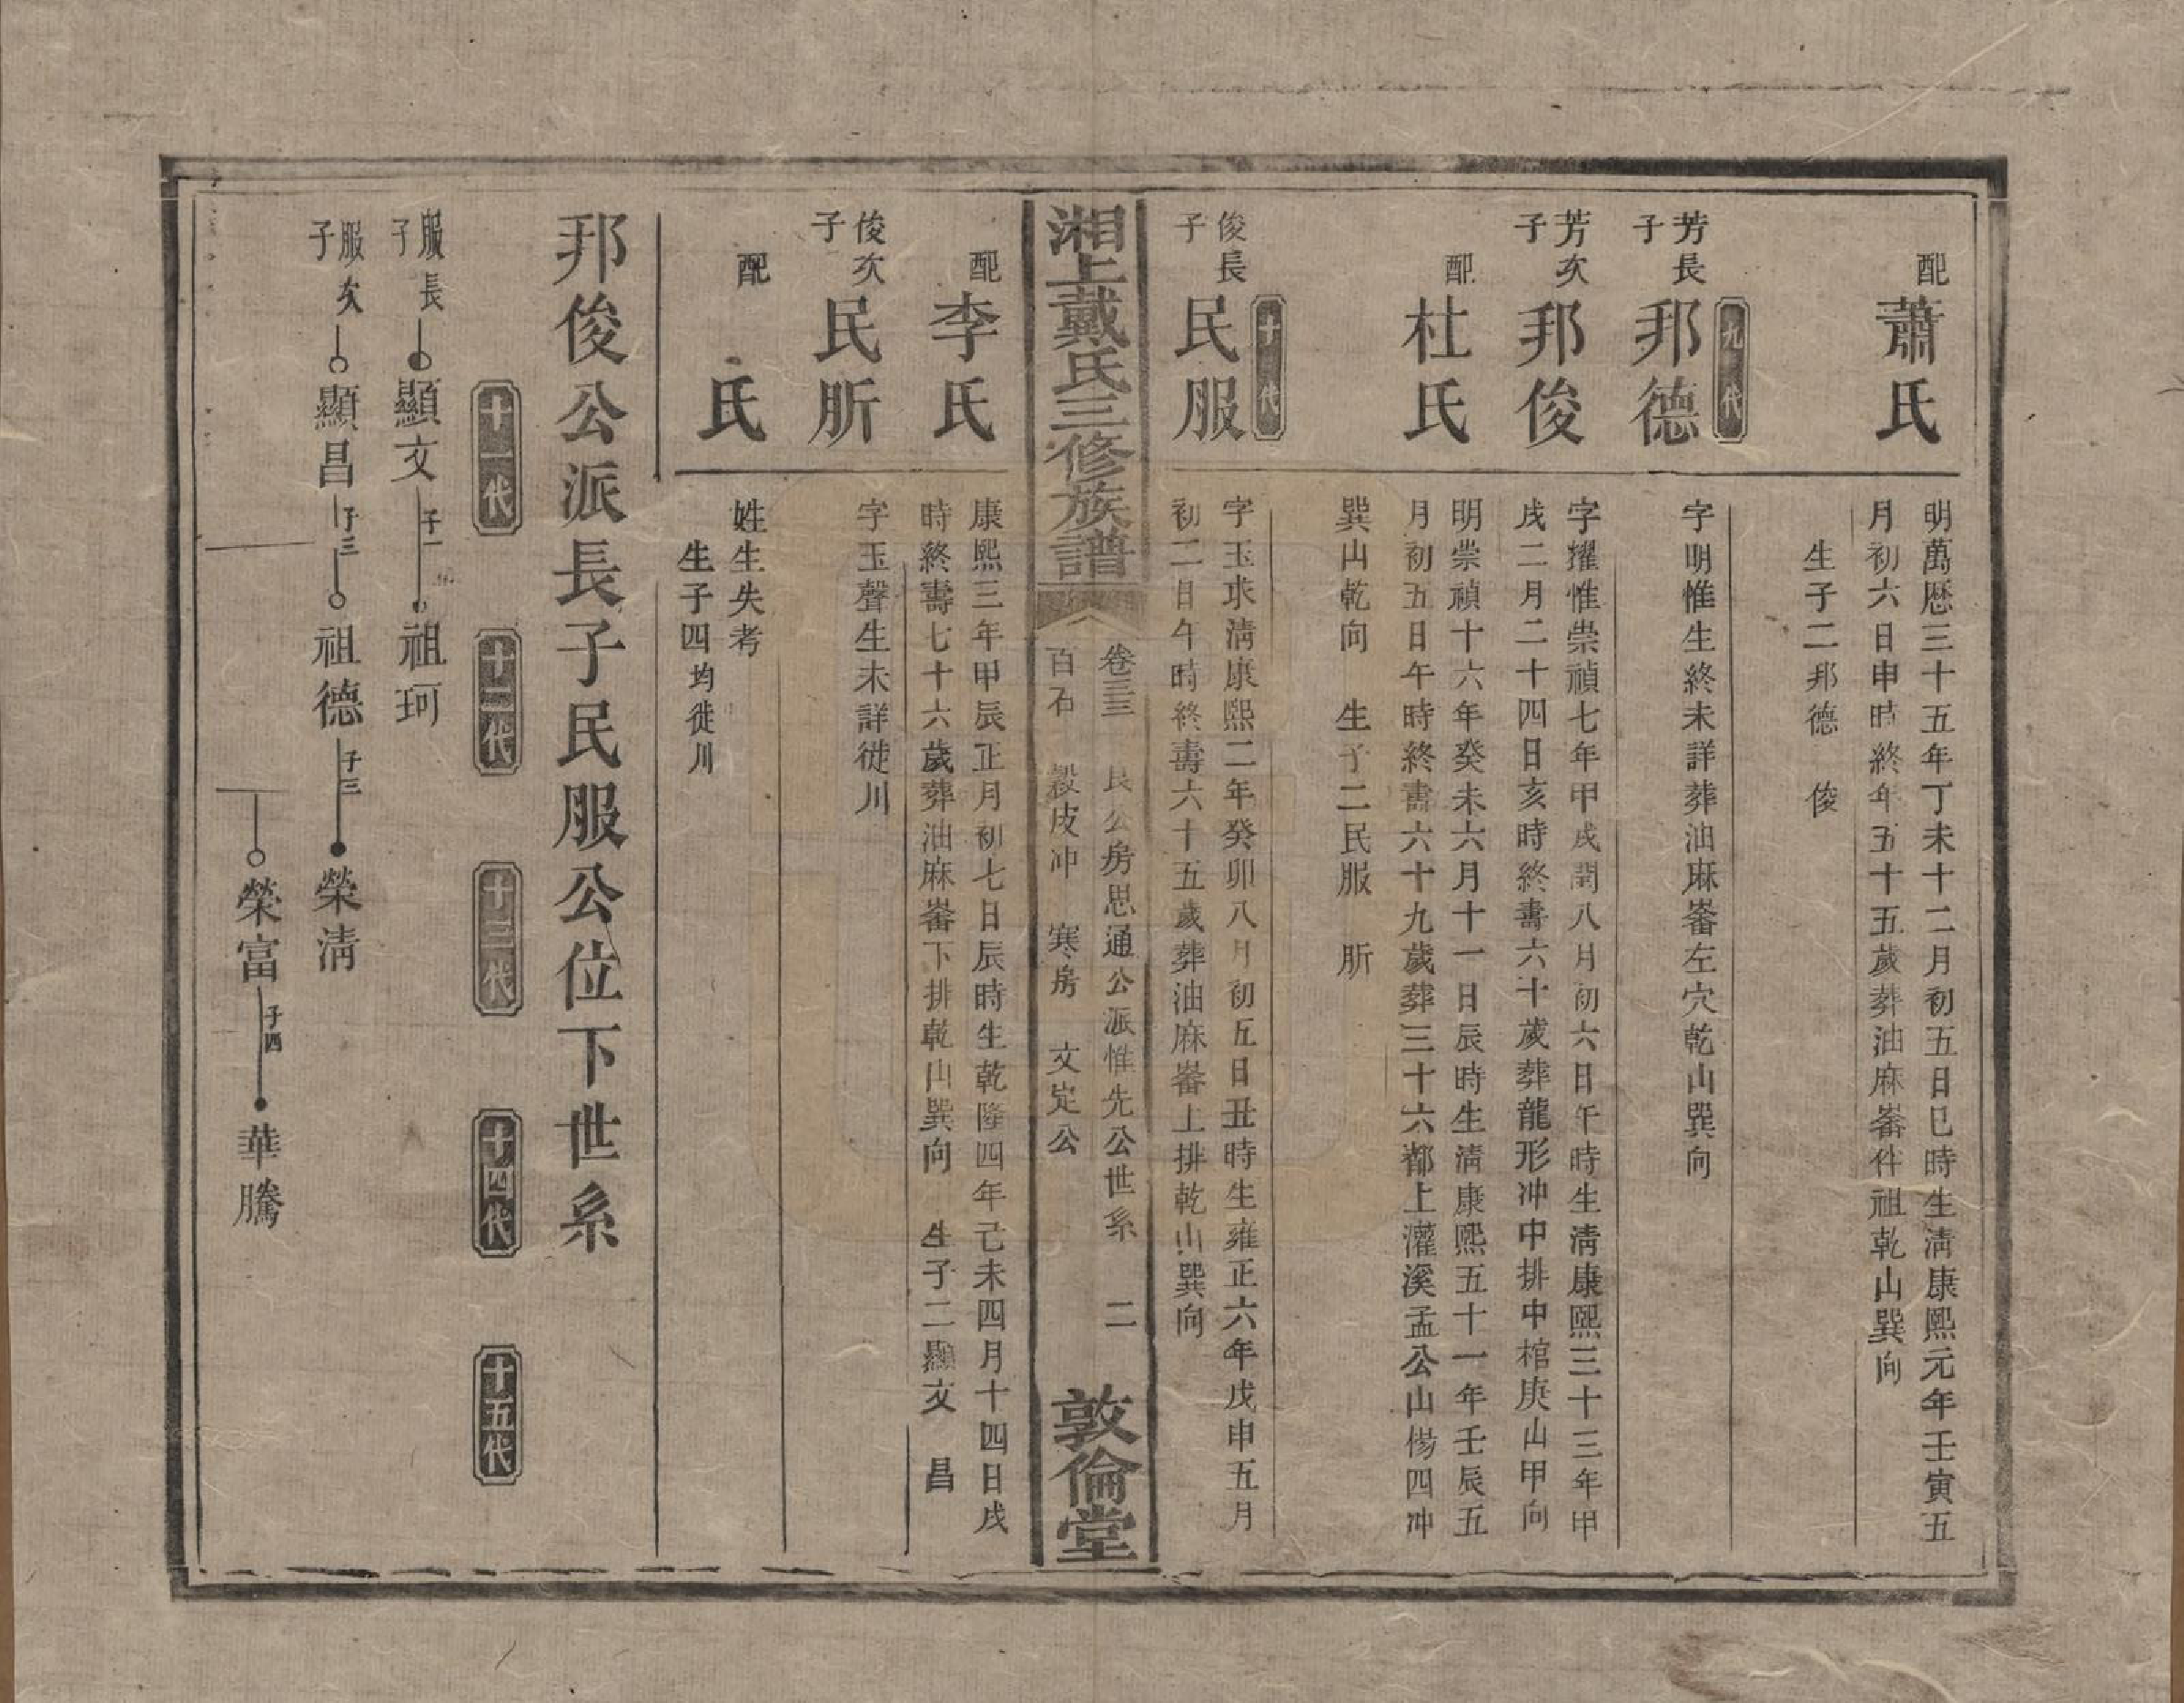 配蕭氏
明萬歷三十五年丁未十二月初五日巳時生清康熙元年壬寅五
月初六日申時終年五十五歲葬油麻崙伴祖乾山巽向
生子二邦德 俊
九代
芳長子邦德
字明惟生終未詳葬油麻崙左穴乾山巽向
芳次子邦俊
字擢惟崇禎七年甲戌閏八月初六日午時生清康熙三十三年甲
戌二月二十四日亥時終壽六十歲葬龍形冲中排中棺庚山甲向
配杜氏
明崇禎十六年癸未六月十一日辰時生清康熙五十一年壬辰五
月初五日午時終壽六十九歲葬三十六都上灌溪孟公山楊四冲
巽山乾向 生子二民服 昕
十代
俊長子民服
字玉求清康熙二年癸卯八月初五日丑時生雍正六年戊申五月
初二日午時終壽六十五歲葬油麻崙上排乾山巽向
湘上戴氏三修族譜
卷三三 良公房思通公派惟先公世系 二
百石 穀皮冲 寒房 文定公
敦倫堂
配李氏
康熙三年甲辰正月初七日辰時生乾隆四年己未四月十四日戌
時終壽七十六歲葬油麻崙下排乾山巽向 生子二顯文 昌
俊次子民昕
字玉聲生未詳徙川
配 氏
姓生失考
生子四均徙川
邦俊公派長子民服公位下世系
十一代 十二代 十三代 十四代 十五代
服長子 顯文 子一 祖珂
服次子 顯昌 子三 祖德 子三 榮清
榮富 子四 華騰